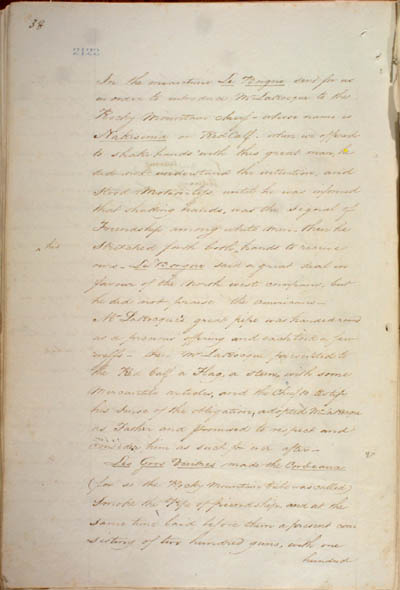 38
2122
In the meantime Le Borgne sent for us
in order to introduce Mr LaRocque to the
Rocky Mountain Chief - whose name is
or Red Calf. when we offered
to shake hands with this great man, he
did not understand the intention, and
stood Motionless until he was informed
that shaking hands, was the signal of
Friendship among white Men. then he
his
stretched forth both hands to receive
ours - Le Borgne said a great deal in
favour of the North west company, but
he did not praise the Americans -
Mr LaRocque's great pipe was handed round
as a precious offering and each took a few
whiffs - then Mr LaRocque presented to
the Red Calf a Flag, a stem, with some
Mercantile articles, and the Chief to testify
his sense of the obligation, adopted Mr LaRocque
as Father and promised to respect and
consider him as such for ever after -
Les Gros Ventres made the Corbeaux
(for so the Rocky Mountain tribe was called)
smoke the Pipe of friendship and at the
same time laid before them a present con
sisting of two hundred guns, with one
hundred